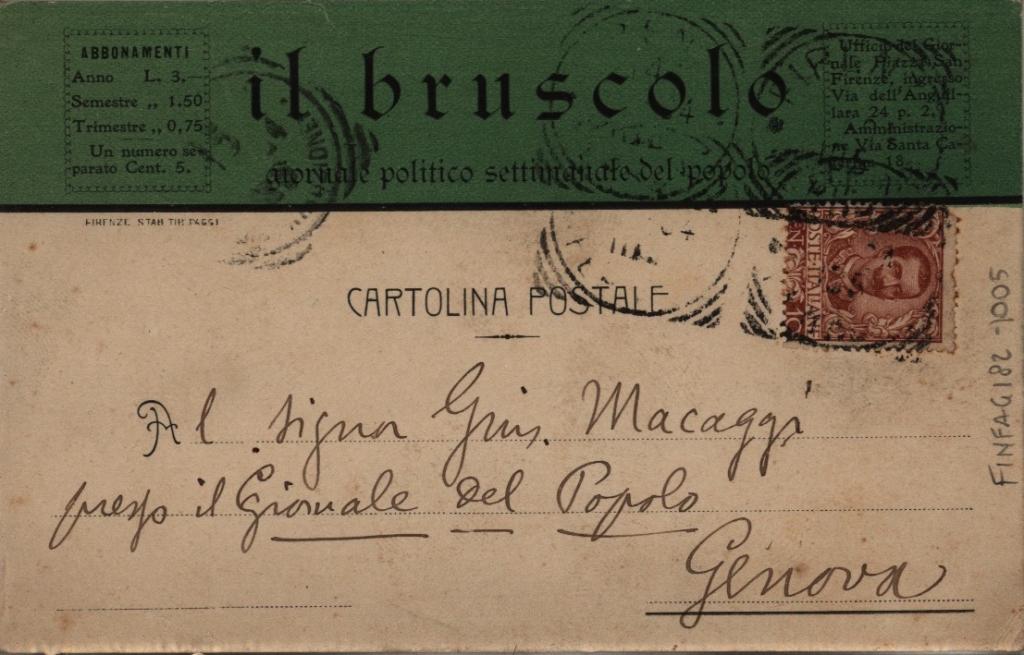 ABBONAMENTI
Anno L. 3,—
Semestre ,, 1.50
Trimestre ,, 0,75
Un numero se-
parato Cent. 5.
il bruscolo
giornale politico settimanale del popolo
Ufficio del Gior-
nale Piazza San
Firenze, ingresso
Via dell'Anguil-
lara 24 p. 2,
Amministrazio-
ne Via Santa Ca-
18
FIRENZE STAB TIP
CARTOLINA POSTALE
POSTE ITALIANE
10
Al signor Gius. Macaggi
presso il Giornale del Popolo
Genova
FINFAG182-1005